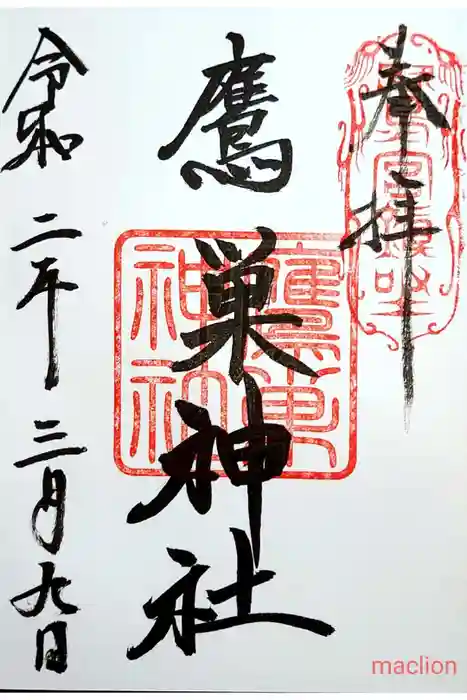 奉拝
鷹巣神社
令和二年三月九日
maclion